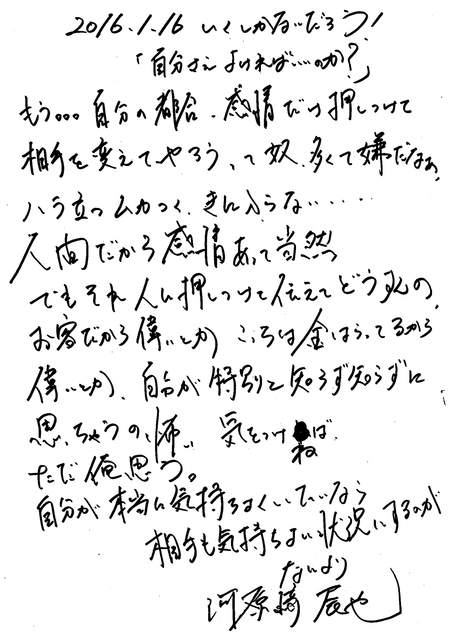 2016.1.16 いくしかないだろう!
「自分さえよければ…のか?」
もう。。。自分の都合、感情だけ押しつけて
相手を変えてやろう、って奴、多くて嫌だなぁ、
ハラ立つムカつく、きにいらない……
人間だから感情あって当然
でもそれ人に押しつけて伝えてどうすんの、
お客だから偉いとか こっちは金はらってるから
偉いとか、自分が特別と知らず知らずに
思っちゃうの、怖い、気をつけねば、
ただ俺思う。
自分が本当に気持ちよくいたいなら
相手も気持ちよい状況にするのが
ないより
河原崎 辰也